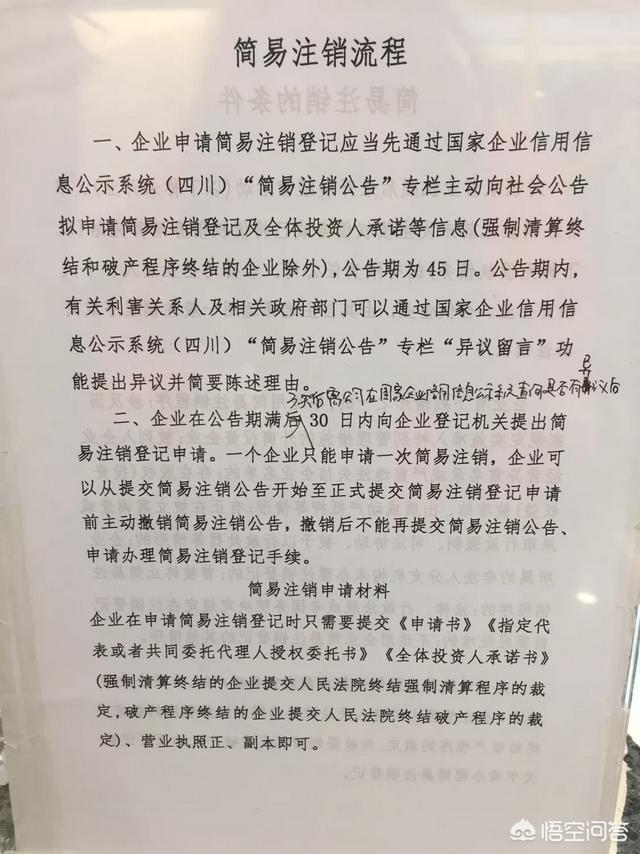 简易注销流程
一、企业申请简易注销登记应当先通过国家企业信用信
息公示系统（四川）“简易注销公告”专栏主动向社会公告
拟申请简易注销登记及全体投资人承诺等信息(强制清算终
结和破产程序终结的企业除外),公告期为 45 日。公告期内,
有关利害关系人及相关政府部门可以通过国家企业信用信
息公示系统（四川）“简易注销公告”专栏“异议留言”功
能提出异议并简要陈述理由。
在国家企业信用信息公示系统查询是否有异议后
二、企业在公告期满后 30 日内向企业登记机关提出简
易注销登记申请。一个企业只能申请一次简易注销，企业可
以从提交简易注销公告开始至正式提交简易注销登记申请
前主动撤销简易注销公告，撤销后不能再提交简易注销公告、
申请办理简易注销登记手续。
简易注销申请材料
企业在申请简易注销登记时只需要提交《申请书》《指定代
表或者共同委托代理人授权委托书》《全体投资人承诺书》
(强制清算终结的企业提交人民法院终结强制清算程序的裁
定,破产程序终结的企业提交人民法院终结破产程序的裁
定)、营业执照正、副本即可。
悟空问答